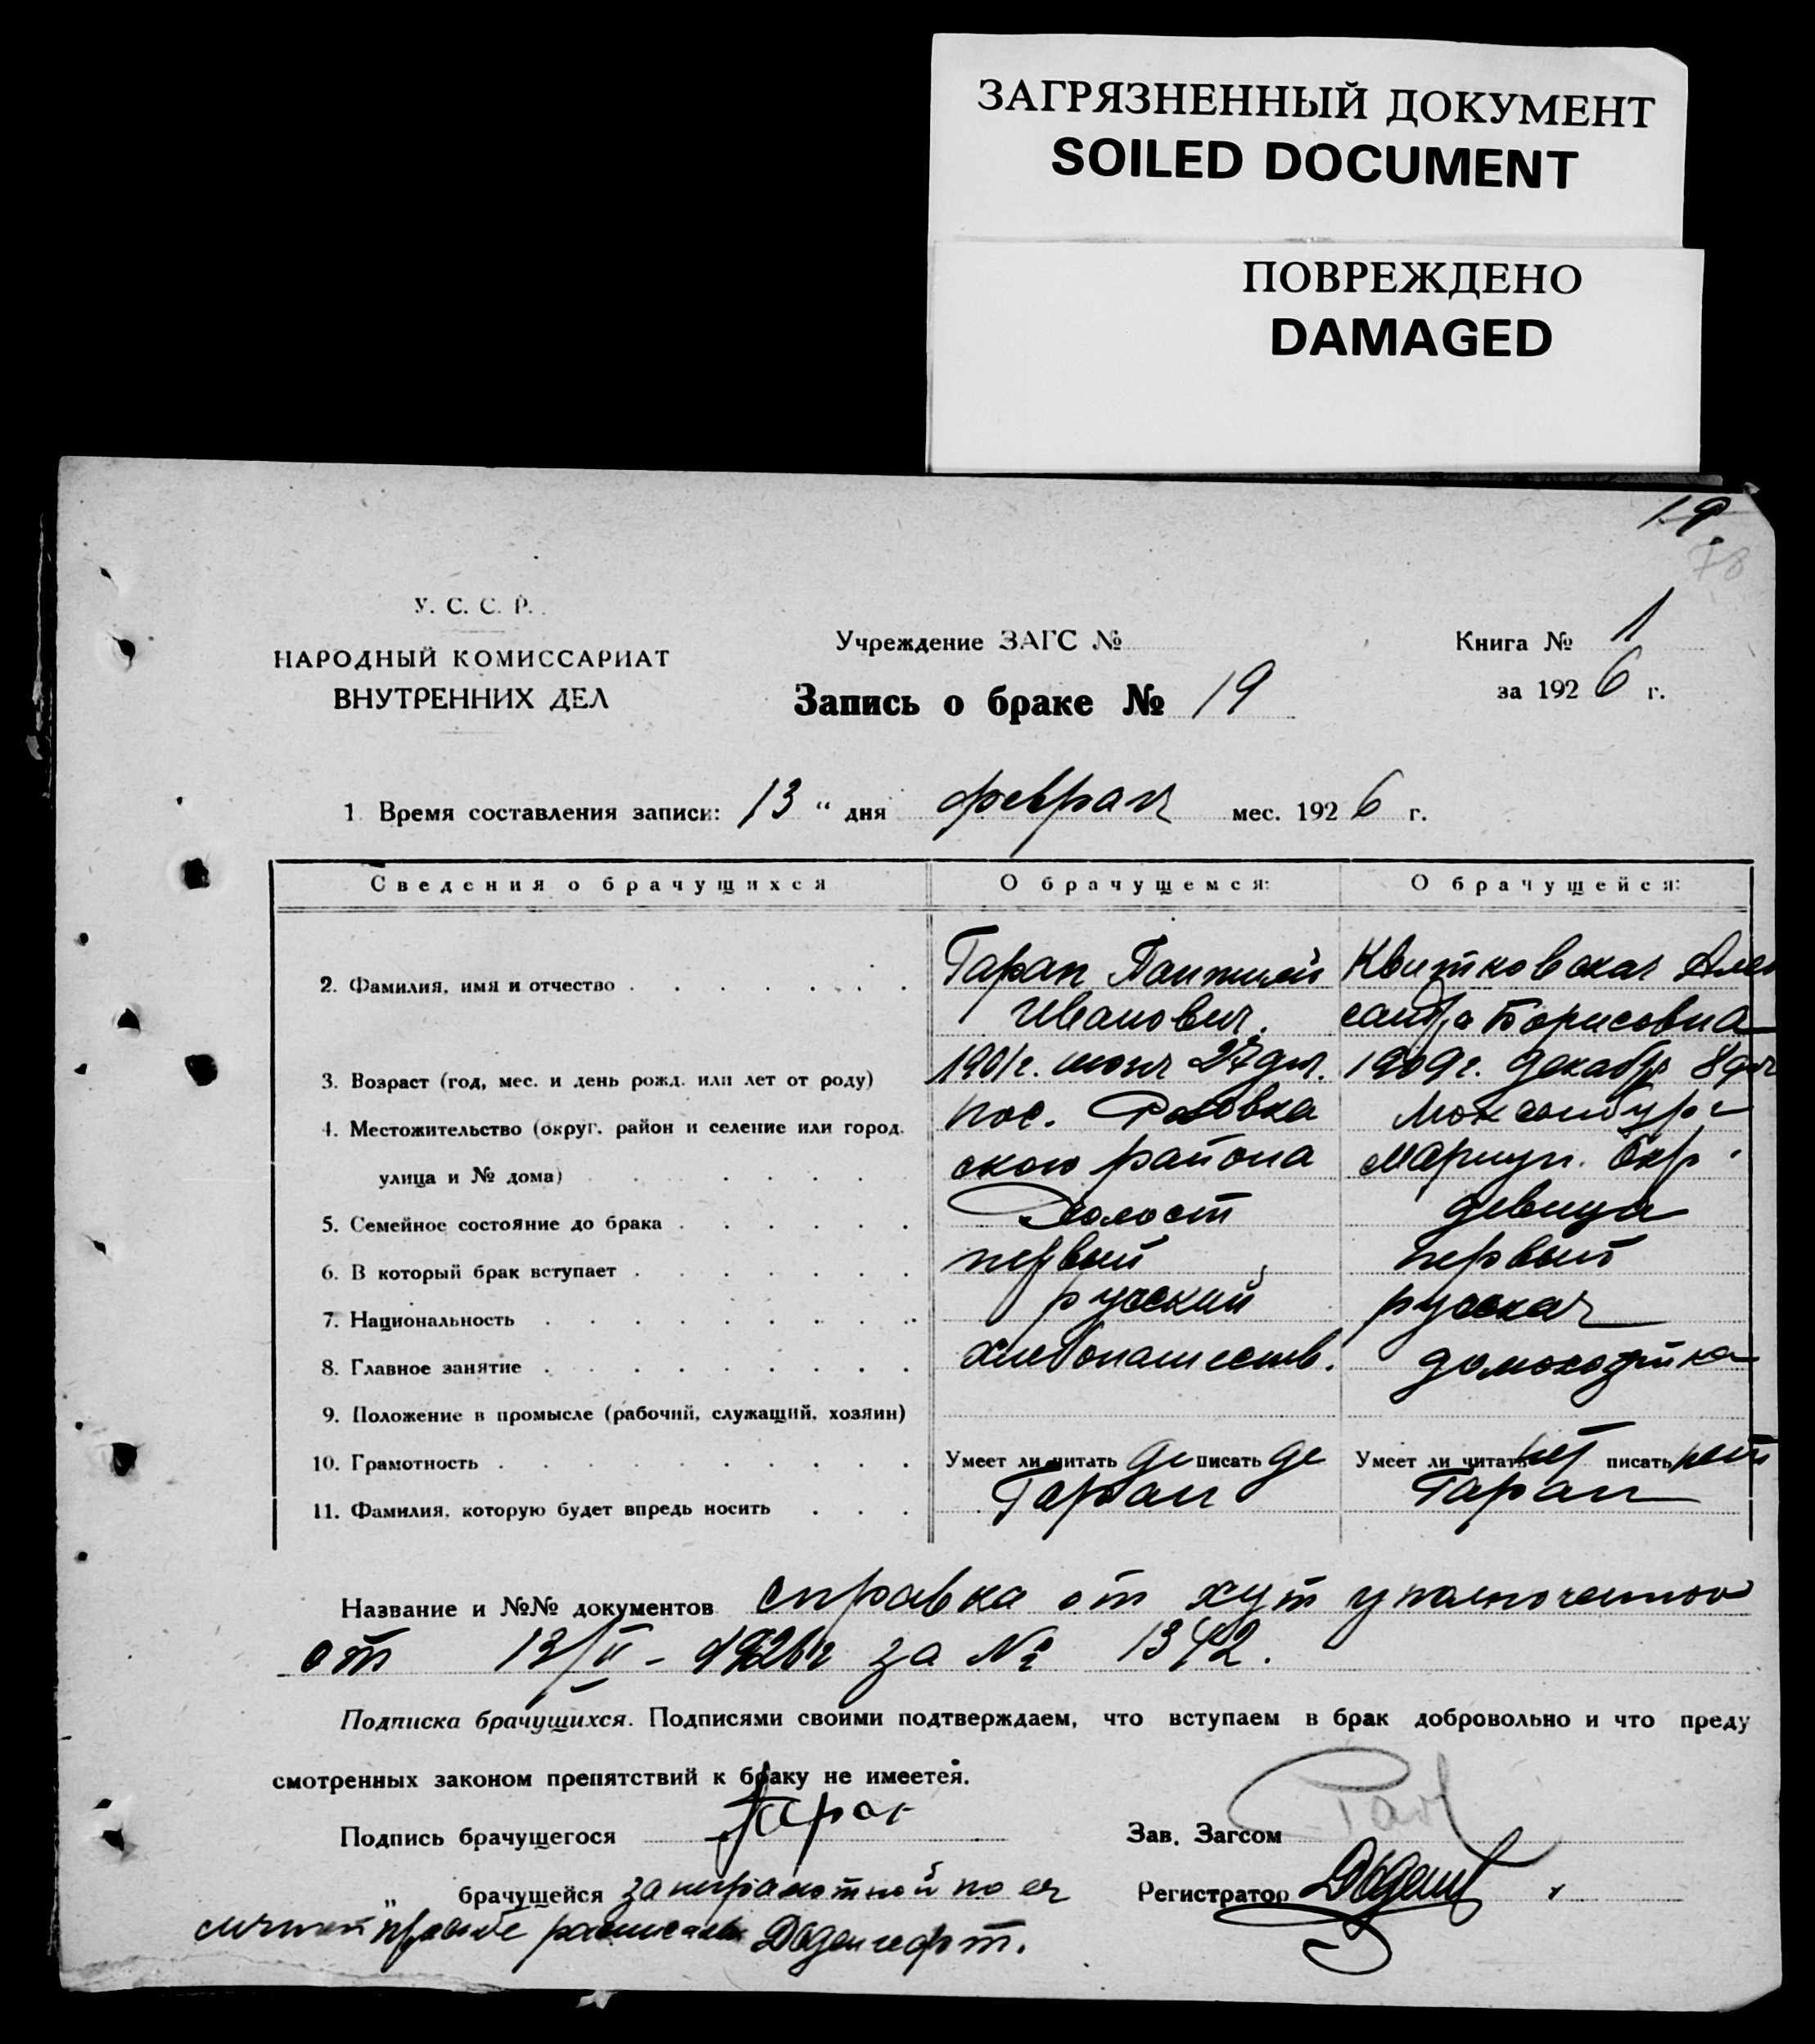 ЗАГРЯЗНЕННЫЙ ДОКУМЕНТ
SOILED DOCUMENT
ПОВРЕЖДЕНО
DAMAGED
19
78
У. С. С. Р.
НАРОДНЫЙ КОМИССАРИАТ
ВНУТРЕННИХ ДЕЛ
Учреждение ЗАГС №
Запись о браке № 19
Книга № 1
за 1926 г.
1 Время составления записи: 13 “ дня февраля мес. 1926 г.
Сведения о брачущихся
О брачущемся:
О брачущейся:
2. Фамилия, имя и отчество
Таран
Иванович.
Квитковская Алек
сандра Борисовна
3. Возраст (год, мес. и день рожд. или лет от роду)
1901 г. июня 27 дня.
1909 г. декабря 8 дня
4. Местожительство (округ, район и селение или город,
улица и № дома)
пос.
ского района
Мариуп. Окр.
5. Семейное состояние до брака
Холост
девица
6. В который брак вступает
первый
первый
7. Национальность
русский
русская
8. Главное занятие
хлебопашеств.
домохозяйка
9. Положение в промысле (рабочий, служащий, хозяин)
10. Грамотность
Умеет ли читать да писать да
Умеет ли читать нет писать нет
11. Фамилия, которую будет впредь носить
Таран
Таран
Название и №№ документов справка от хут
от 13/II – 1926 г за № 1342.
Подписка брачущихся. Подписями своими подтверждаем, что вступаем в брак добровольно и что преду
смотренных законом препятствий к браку не имеется.
Подпись брачущегося Таран
Зав. Загсом
„ брачущейся за неграмотной по ея
личной просьбе
Регистратор